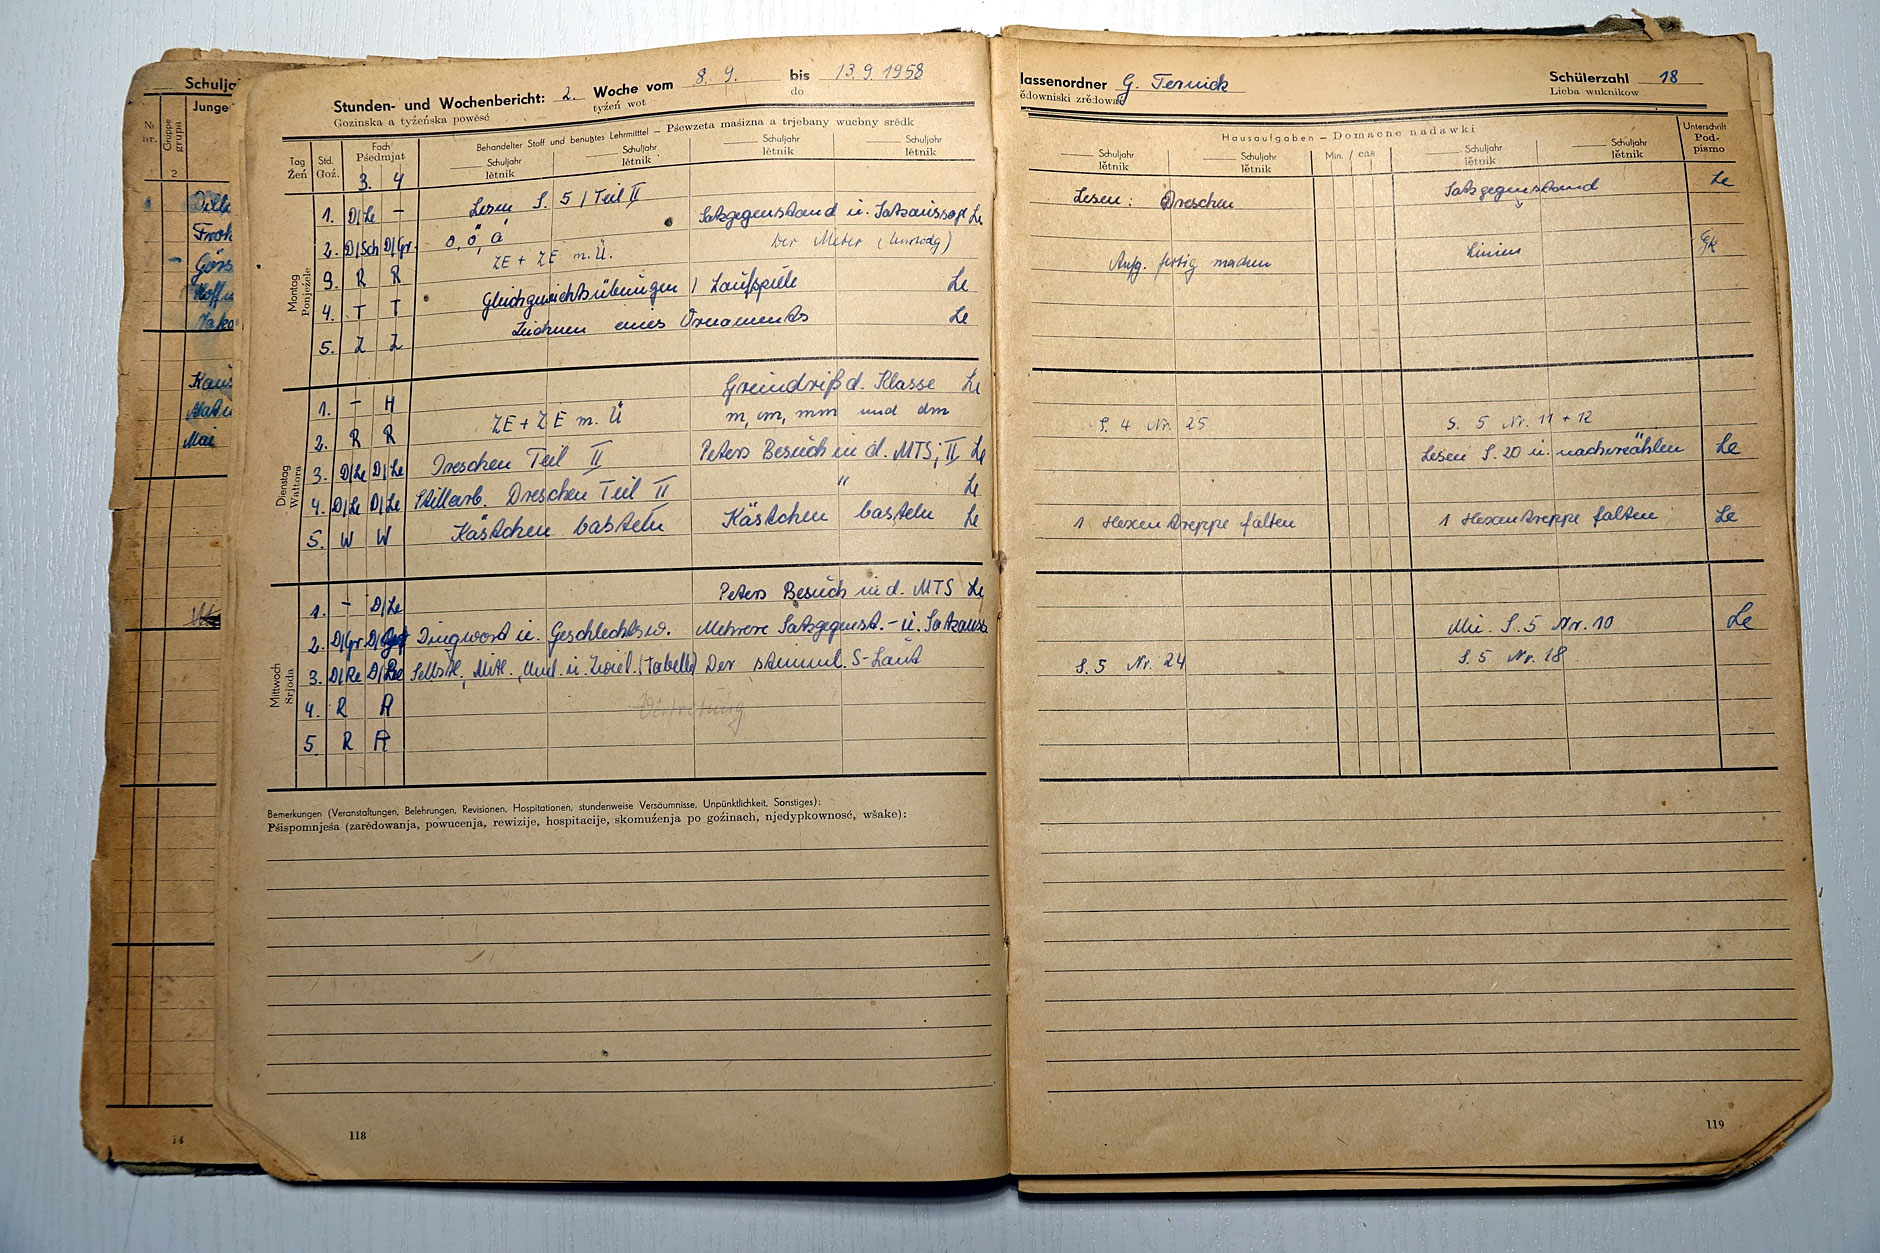 Schulja
Junge
Nr.
nr.
Gruppe
grupa
2
Kauf
Mai
14
Stunden- und Wochenbericht: 2. Woche vom 8. 9. bis 13. 9. 1958
Gozinska a tyźeńska powěsć tyźeń wot do
Tag
Źeń
Std.
Goź.
Fach
Pśedmjat
3. 4
Behandelter Stoff und benutztes Lehrmittel – Pśewzeta maśizna a trjebany wucbny srědk
Schuljahr Schuljahr Schuljahr Schuljahr
lětnik lětnik lětnik lětnik
Montag
Ponjeźele
1. D/Le – Lesen S. 5 / Teil II
2. D/Sch D/Gr. o, ö, a Satzgegenstand u. Satzaussage Le
3. R R ZE + ZE m. Ü. Der Meter
4. T T Gleichgewichtsübungen / Laufspiele Le
5. Z Z Zeichnen eines Ornaments Le
Dienstag
Wałtora
1. – H Grundriß d. Klasse Le
2. R R ZE + ZE m. Ü m, cm, mm und dm
3. D/Le D/Le Dreschen Teil II Peters Besuch in d. MTS, II Le
4. D/Le D/Le Stillarb. Dreschen Teil II " Le
5. W W Kästchen basteln Kästchen basteln Le
Mittwoch
Srjoda
1. – D/Le Peters Besuch in d. MTS Le
2. D/Gr. Dingwort u. Geschlechtsw. Mehrere Satzgegenst.- u. Satzauss
3. D/Re Selbstl., Mitl., Uml. u. Zwiel. (Tabelle) Der stimml. S-Laut
4. R R Vertretung
5. R R
Bemerkungen (Veranstaltungen, Belehrungen, Revisionen, Hospitationen, stundenweise Versäumnisse, Unpünktlichkeit, Sonstiges):
Pśispomnjeśa (zarědowanja, powucenja, rewizije, hospitacije, skomuźenja po goźinach, njedypkownosć, wšake):
118
lassenordner G. Ternick Schülerzahl 18
ědowniski zrědowaŕ Licba wuknikow
Hausaufgaben – Domacne nadawki
Schuljahr Schuljahr Min. / cas Schuljahr Schuljahr
lětnik lětnik lětnik lětnik
Unterschrift
Pod-
pismo
Lesen: Dreschen Satzgegenstand Le
Aufg. fertig machen Linien
S. 4 Nr. 25 S. 5 Nr. 11 + 12
Lesen S. 20 u. nacherzählen Le
1 Hexentreppe falten 1 Hexentreppe falten Le
Mü. S. 5 Nr. 10 Le
S. 5 Nr. 24 S. 5 Nr. 18
119